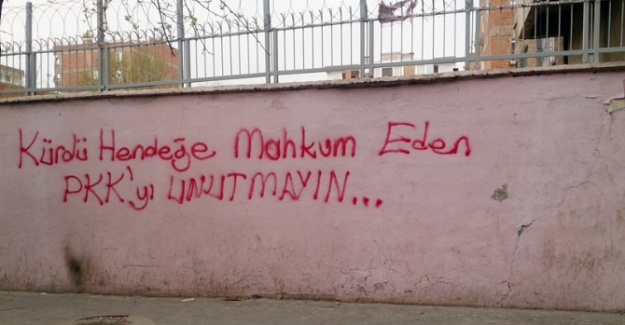 Kürdü Hendeğe Mahkum Eden
PKK'yı UNUTMAYIN...